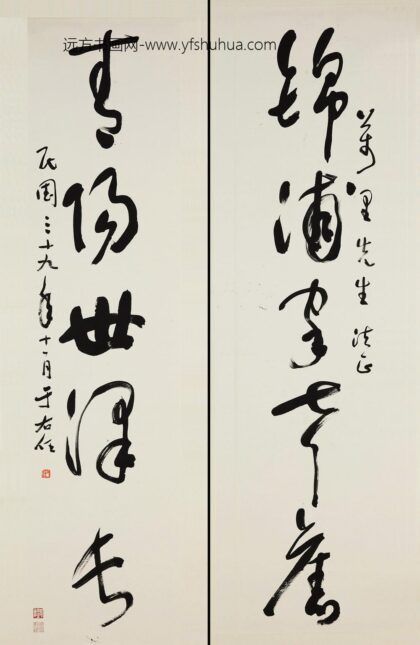 远方书画网-www.yfshuhua.com
萬里先生法正
錦浦家聲舊
青陽世澤長
民國三十九年十一月于右任